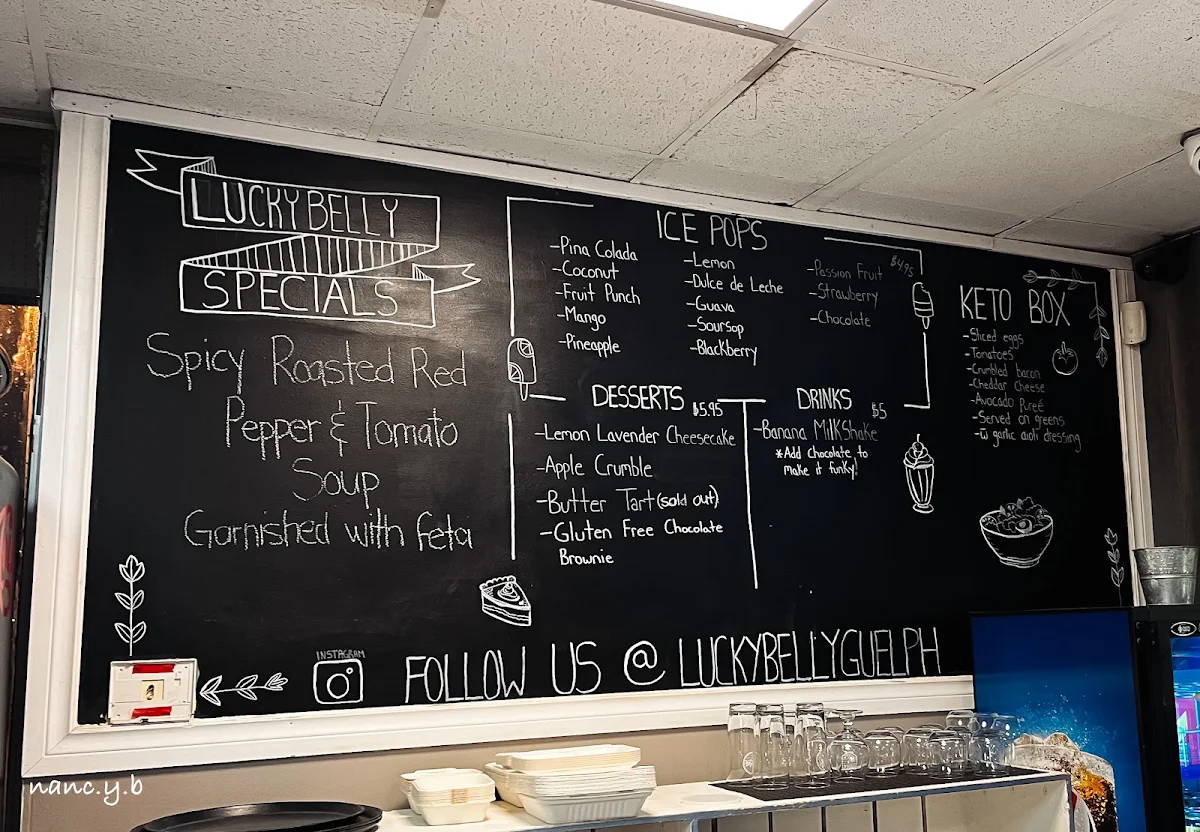 LUCKYBELLY
SPECIALS
Spicy Roasted Red
Pepper & Tomato
Soup
Garnished with feta
ICE POPS
-Pina Colada
-Coconut
-Fruit Punch
-Mango
-Pineapple
-Lemon
-Dulce de Leche
-Guava
-Soursop
-Blackberry
$4.95
-Passion Fruit
-Strawberry
-Chocolate
DESSERTS $5.95
-Lemon Lavender Cheesecake
-Apple Crumble
-Butter Tart (sold out)
-Gluten Free Chocolate
Brownie
DRINKS $5
-Banana MilkShake
*Add chocolate to
make it funky!
KETO BOX
-Sliced eggs
-Tomatoes
-Crumbled bacon
-Cheddar Cheese
-Avocado Pureé
-Served on greens
-w̄ garlic aioli dressing
INSTAGRAM
FOLLOW US @ LUCKYBELLYGUELPH
nanc.y.b